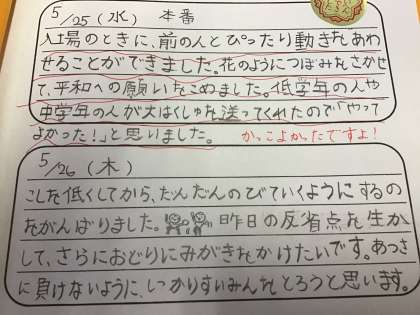 5/25(水) 本番
入場のときに、前の人とぴったり動きをあわ
せることができました。花のようにつぼみをさかせ
て、平和への願いをこめました。低学年の人や
中学年の人が大はくしゅを送ってくれたので「やって
よかった!」と思いました。
かっこよかったですよ!
5/26(木)
こしを低くしてから、だんだんのびていくようにするの
をがんばりました。昨日の反省点を生か
して、さらにおどりにみがきをかけたいです。あつさ
に負けないように、しっかりすいみんをとろうと思います。